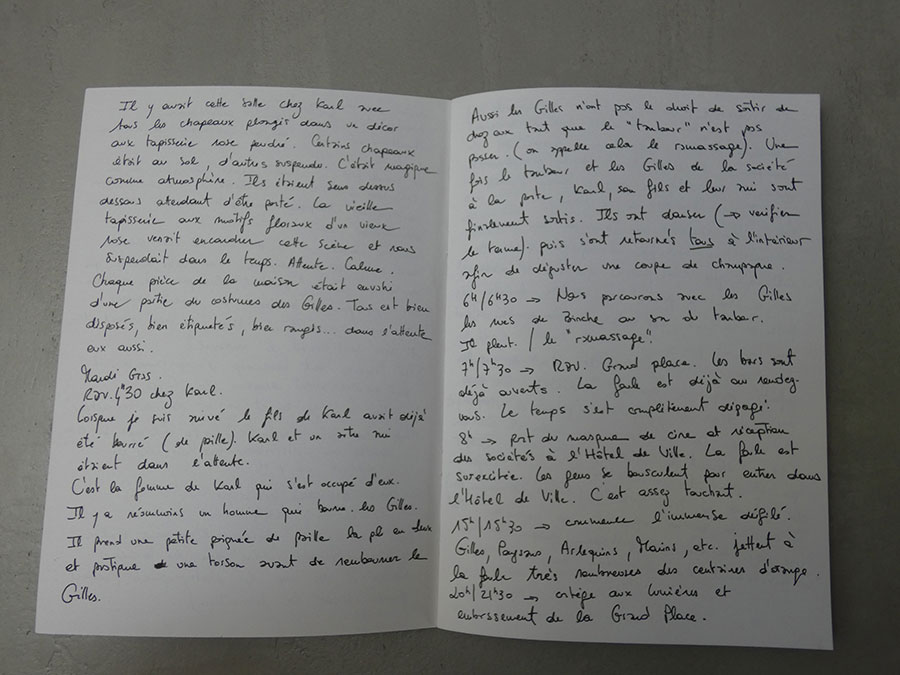 Il y avait cette salle chez Karl avec
tous les chapeaux plongés dans un décor
aux tapisserie rose poudré. Certains chapeaux
étair au sol, d'autres suspendu. C'était magique
comme atmosphère. Ils étaient sens dessus
dessous attendant d'être porté. La vieille
tapisserie aux motifs floraux d'un vieux
rose venait encadrer cette scène et nous
suspendait dans le temps. Attente. Calme.
Chaque pièce de la maison était envahi
d'une partie du costumes des Gilles. Tous est bien
disposés, bien étiquetés, bien rangés... dans l'attente
eux aussi.
Mardi Gras.
RDV. 4h30 chez Karl.
Lorsque je suis arrivé le fils de Karl avait déjà
été bourré (de paille). Karl et un autre ami
étaient dans l'attente.
C'est la femme de Karl qui s'est occupé d'eux.
Il y a néanmoins un homme qui bourre les Gilles.
Il prend une petite poignée de paille la plie en deux
et pratique une torsion avant de rembourrer le
Gilles.
Aussi les Gilles n'ont pas le droit de sortir de
chez eux tant que le "tambour" n'est pas
passer. (on appelle cela le ramassage). Une
fois le tambour et les Gilles de la société
à la porte, Karl, son fils et leur ami sont
finalement sortis. Ils ont danser (→ verifier
le terme). puis s'ont retournés tous à l'intérieur
afin de déguster une coupe de champagne.
6h/6h30 → Nous parcourons avec les Gilles
les rues de Binche au son du tambour.
Il pleut. / le "ramassage".
7h/7h30 → RDV. Grand place. Les bars sont
déjà ouverts. La foule est déjà au rendez-
vous. Le temps s'est complètement dégagé.
8h → port du masque de cire et réception
des sociétés à l'Hôtel de Ville. La foule est
surexcitée. Les gens se bousculent pour entrer dans
l'Hôtel de Ville. C'est assez touchant.
15h/15h30 → commence l'immense défilé.
Gilles, Paysans, Arlequins, Marins, etc. jettent à
la foule très nombreuses des centaines d'orange.
20h/21h30 → cortège aux lumières et
embrasement de la Grand Place.